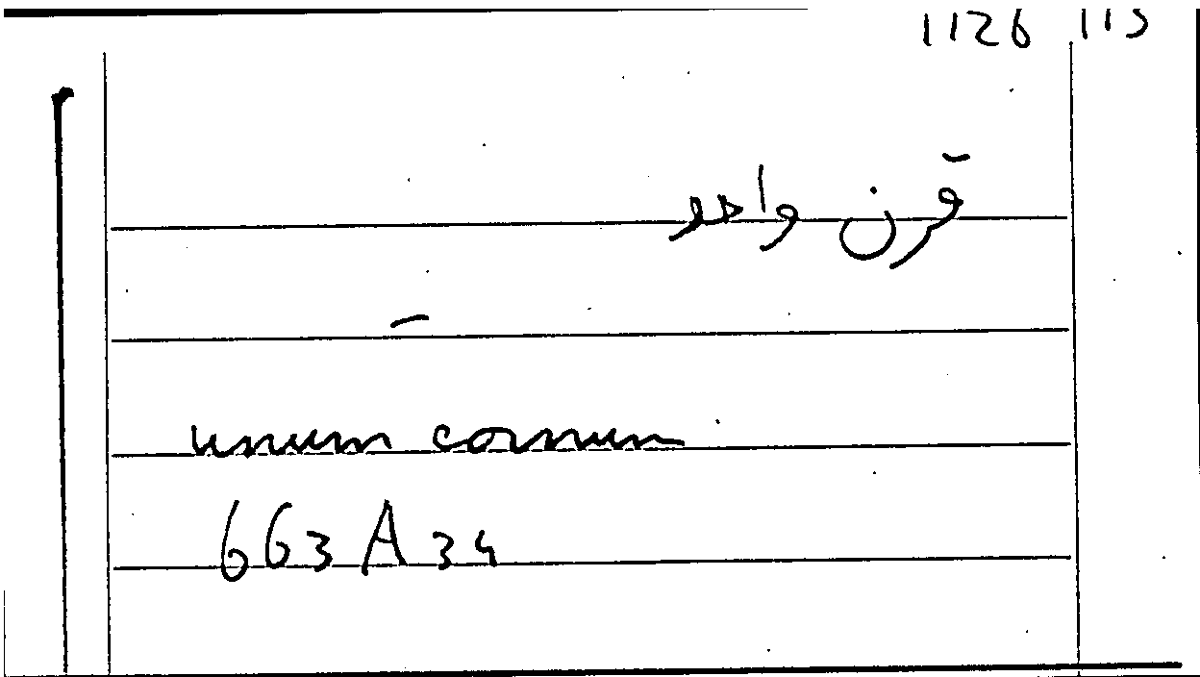 1126 113
قرن واحد
–
unum cornum
663 A 34